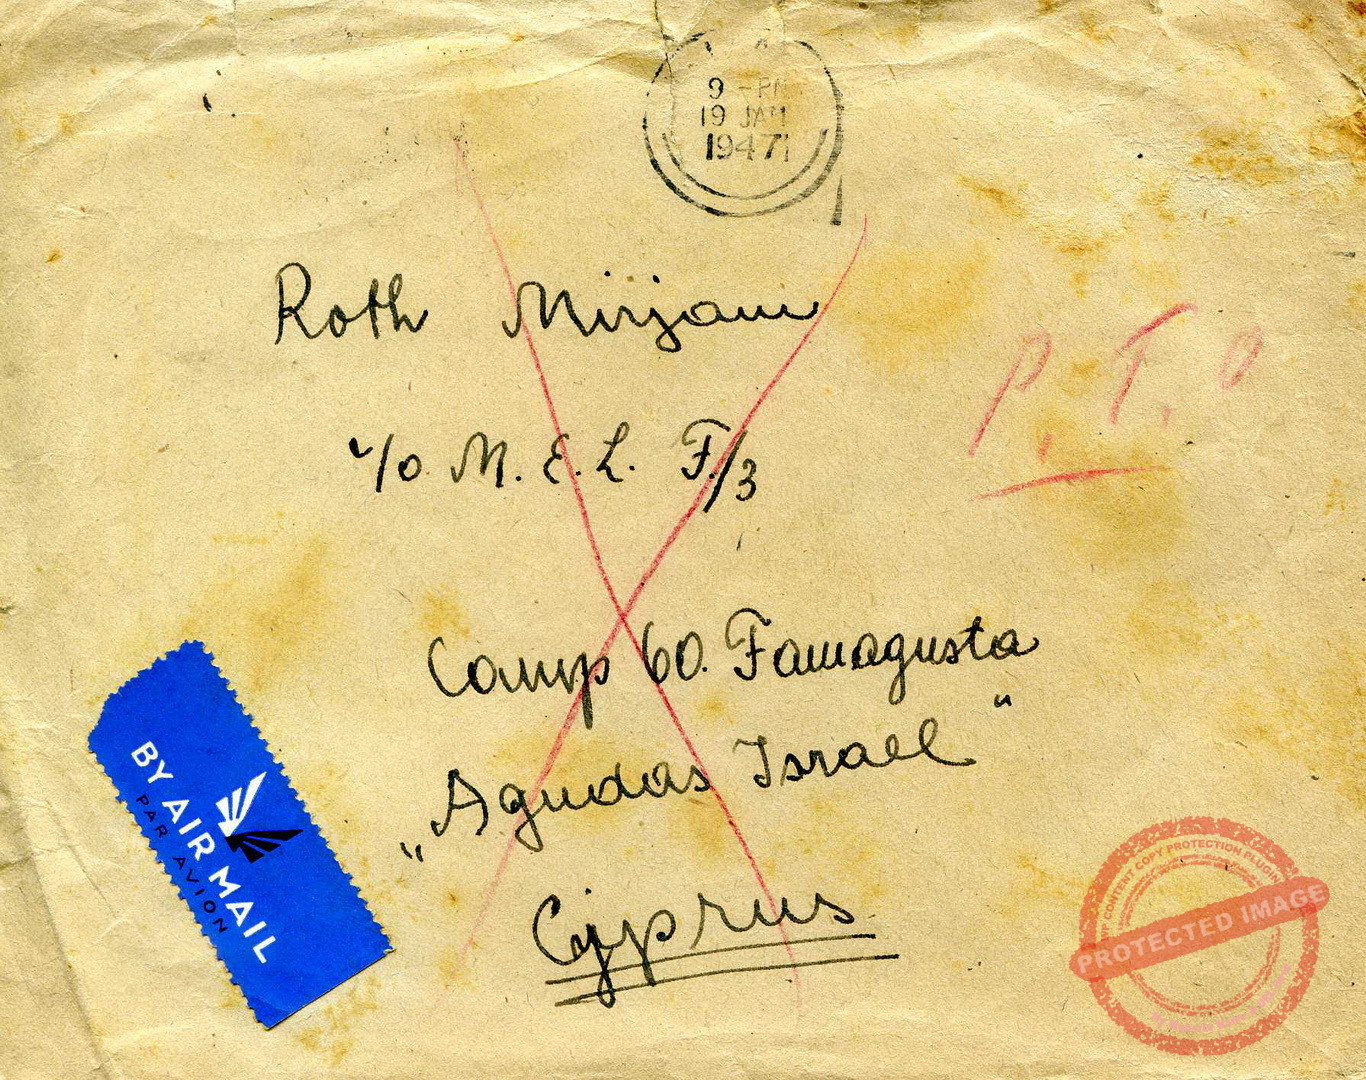 9 - PM
19 JAN
1947
Roth Mirjam
c/o M. E. L. F./3
P. T. O
Camp 60. Famagusta
„Agudas Israel“
Cyprus
BY AIR MAIL
PAR AVION
CONTENT COPY PROTECTION PLUGIN
PROTECTED IMAGE